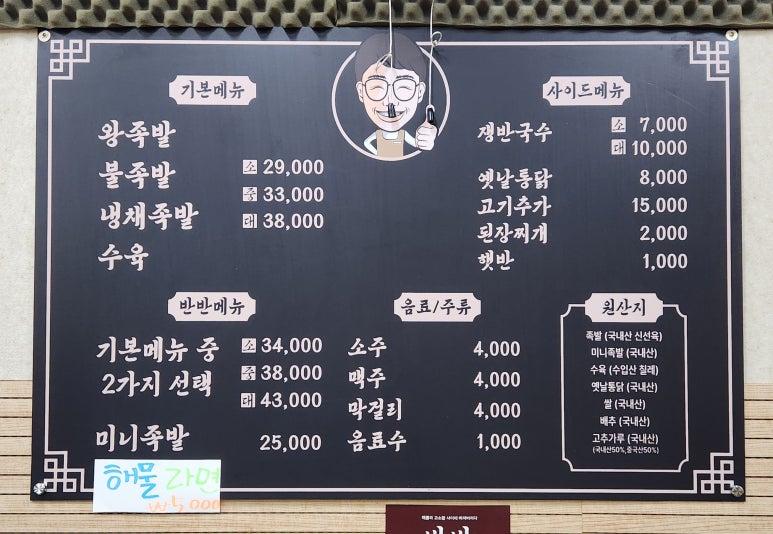 기본메뉴
왕족발
불족발
냉채족발
수육
소 29,000
중 33,000
대 38,000
사이드메뉴
쟁반국수 소 7,000
대 10,000
옛날통닭 8,000
고기추가 15,000
된장찌개 2,000
햇반 1,000
반반메뉴
기본메뉴 중
2가지 선택
소 34,000
중 38,000
대 43,000
미니족발 25,000
음료/주류
소주 4,000
맥주 4,000
막걸리 4,000
음료수 1,000
원산지
족발 (국내산 신선육)
미니족발 (국내산)
수육 (수입산 칠레)
옛날통닭 (국내산)
쌀 (국내산)
배추 (국내산)
고추가루 (국내산)
(국내산50%,중국산50%)
해물 라면
₩5000